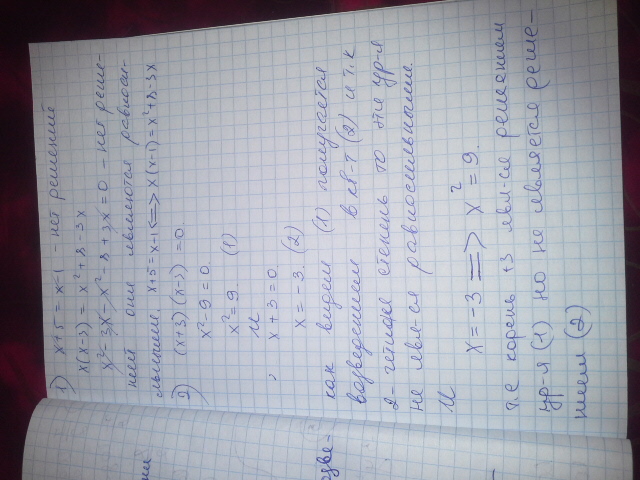 1) x+5 = x-1 - нет решений
x(x-3) = x²+8-3x
x²-3x-x²-8+3x=0 - нет реше-
ний они являются равноси-
льными. x+5=x-1 <=> x(x-1)=x²+8-3x
2) (x+3)(x-3)=0.
x²-9=0.
x²=9. (1)
и
, x+3=0.
x=-3. (2)
как видем (1) получается
возведением в кв-т (2) и т.к
2-четная степень то эти ур-я
не явл-ся равносильными.
и
x=-3 => x²=9.
т.е корень +3 явл-ся решением
ур-я (1) но не является реше-
нием (2)
озве-